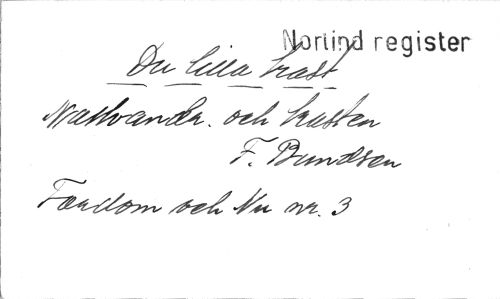 Norlind register
Du lilla trast
Nattvandr. och trasten
F. Bundsen
Fordom och Nu nr. 3